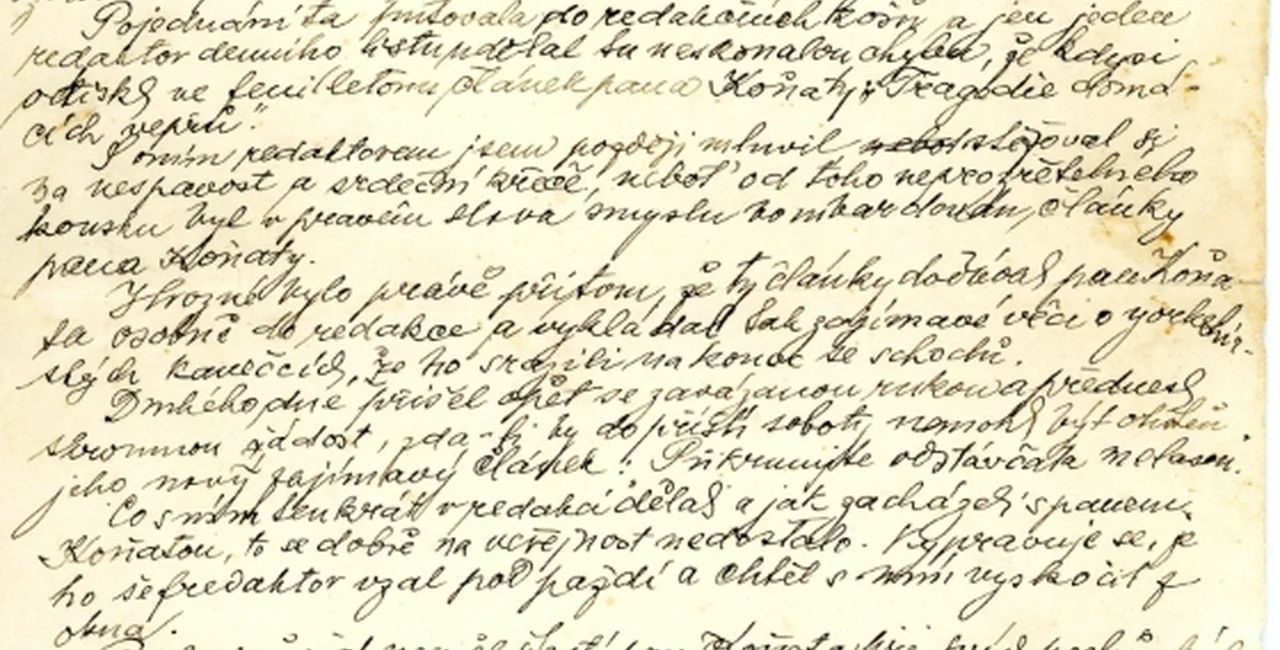 Pojednání ta putovala do redakčních košů a jen jeden
redaktor denního listu udělal tu neskonalou chybu, že kdysi
otiskl ve feuilletonu článek pana Koňaty: „Tragedie domá-
cích vepřů."
S oním redaktorem jsem později mluvil stěžoval si
na nespavost a srdeční křeče, neboť od toho neprozřetelného
kousku byl v pravém slova smyslu bombardován, články
pana Koňaty.
Hrozné bylo právě přitom, že ty články dodával pan Koňa-
ta osobně do redakce a vykládal tak zajímavé věci o yorkshir-
ských kanečcích, že ho srazili na konec se schodů.
Druhého dne přišel opět se zavázanou rukou a přednesl
skromnou žádost, zda-li by do příští soboty nemohl být otištěn
jeho nový zajímavý článek: Přikrmujte odstávčata melasou.
Co s ním tenkrát v redakci dělali a jak zacházeli s panem
Koňatou, to se dobře na veřejnost nedostalo. Vypravuje se, že
ho šéfredaktor vzal pod paždí a chtěl s ním vyskočit z
okna.